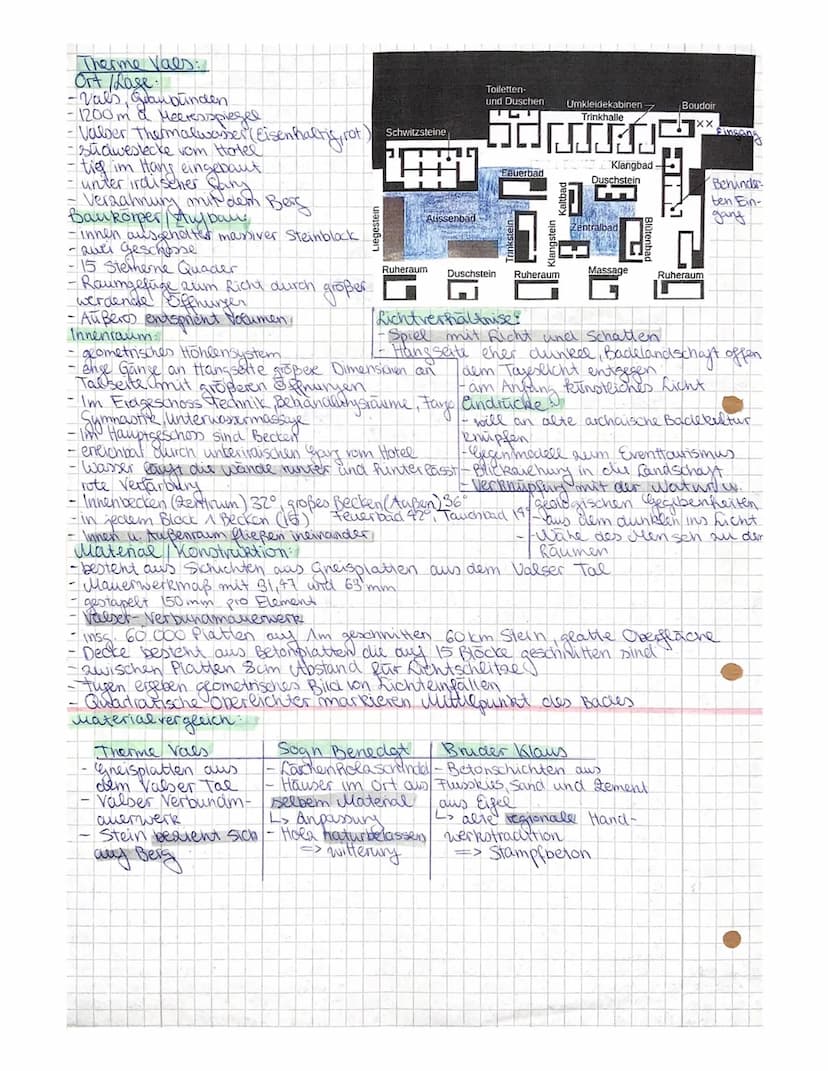 Therme Vals:
Ort/Lage:
- Vals, Graubünden
- 1200 m ü. Meeresspiegel
- Valser Thermalwasser (Eisenhaltig, rot)
- Südwestecke vom Hotel
- tief im Hang eingebaut
- unterirdischer Gang
- Verzahnung mit dem Berg
Baukörper/Aufbau:
- innen ausgehöhlter massiver Steinblock
- zwei Geschosse
- 15 Steinerne Quader
- Raumgefüge zum Licht durch größer
werdende Öffnungen
- Äußeres entspricht Volumen
Innenraum:
- geometrisches Höhlensystem
- enge Gänge an Hangseite größere Dimensionen an
Talseite mit größeren Öffnungen
- Im Erdgeschoss Technik, Behandlungsräume, Fango
Gymnastik, Unterwassermassage
- im Hauptgeschoss sind Becken
- erreichbar durch unterirdischen Gang vom Hotel
- Wasser läuft die Wände runter und hinterlässt
rote Verfärbung
- Innenbecken (Zentrum) 32°, großes Becken (Außen) 36°
- in jedem Block 1 Becken (15) Feuerbad 42° Tauchbad 14°
- Innen u. Außenraum fließen ineinander
Toiletten-
und Duschen
Umkleidekabinen
Boudoir
Trinkhalle
Eingang
Schwitzsteine
Klangbad
Feuerbad
Duschstein
Behinder-
ten Ein-
gang
Liegestein
Aussenbad
Trinkstein
Klangstein
Kaltbad
Zentralbad
Blütenbad
Ruheraum
Duschstein
Ruheraum
Massage
Ruheraum
Lichtverhältnise:
- Spiel mit Licht und Schatten
- Hangseite eher dunkel, Badelandschaft offen
dem Tageslicht entgegen
- am Anfang künstliches Licht
Eindrücke:
- will an alte archaische Badekultur
knüpfen
- Gegenmodell zum Eventtourismus
- Blickziehung in die Landschaft
- Verknüpfung mit der Natur u.
geologischen Gegebenheiten
- aus dem dunklen ins Licht
- Nähe des Menschen zu den
Räumen
Material/Konstruktion:
- besteht aus Schichten aus Gneisplatten aus dem Valser Tal
- Mauerwerkmaß mit 31, 47 und 63 mm
- gestapelt 150mm pro Element
- Valser-Verbundmauerwerk
- insg. 60.000 Platten auf 1m geschnitten 60km Stein, glatte Oberfläche
- Decke besteht aus Betonplatten die auf 15 Blöcke geschnitten sind
- zwischen Platten 8cm Abstand für Lichtschlitze
- Fugen ergeben geometrisches Bild von Lichteinfällen
- Quadratische Oberlichter markieren Mittelpunkt des Bades
Materialvergleich:
Therme Vals
- Gneisplatten aus
dem Valser Tal
- Valser Verbundm-
auerwerk
- Stein bezieht sich
auf Berg
Sogn Benedgt
- Lärchenholzschindel
- Häuser im Ort aus
selbem Material
↳ Anpassung
- Holz naturbelassen
=> Witterung
Bruder Klaus
- Betonschichten aus
Flusskies, Sand und Zement
aus Eifel
↳ alte regionale Hand-
werkstradition
=> Stampfbeton